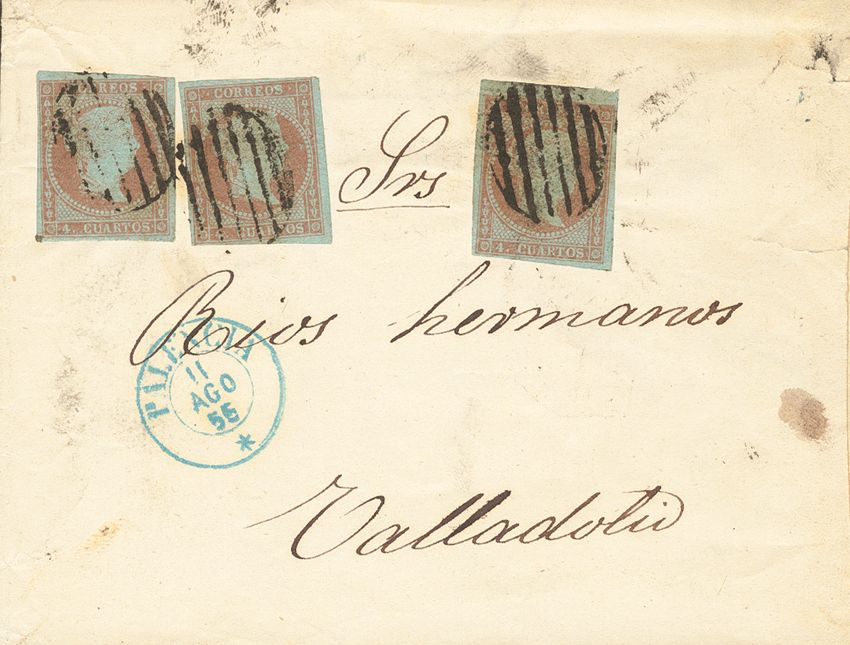 CORREOS
CORREOS
4. CUARTOS
CUARTOS
4. CUARTOS
Srs
Rios hermanos
PALENCIA
11
AGO
55
Valladolid